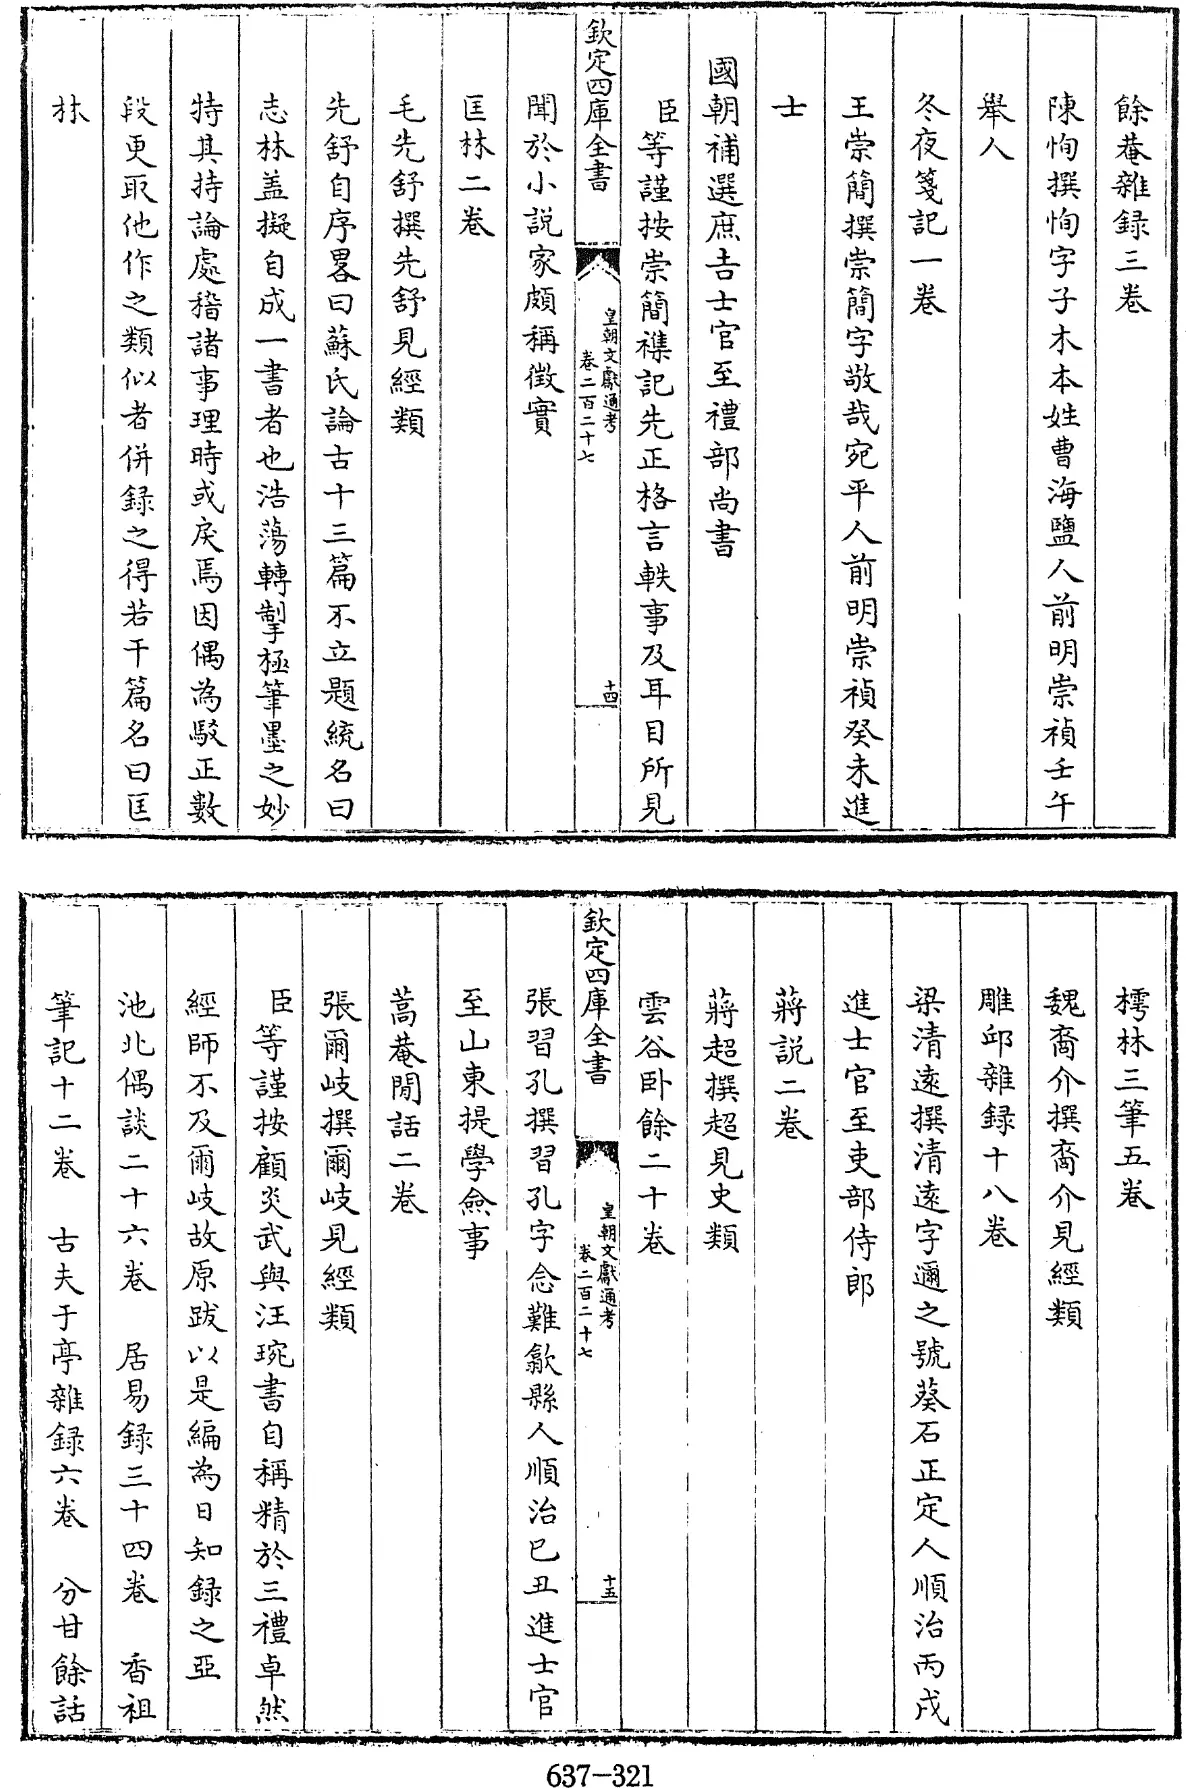 餘菴雜録三卷
陳恂撰恂字子木本姓曹海鹽人前明崇禎壬午
舉人
冬夜箋記一卷
王崇簡撰崇簡字敬哉宛平人前明崇禎癸未進
士
國朝補選庶吉士官至禮部尚書
臣等謹按崇簡襍記先正格言軼事及耳目所見
欽定四庫全書
皇朝文獻通考
卷二百二十七
十四
聞於小説家頗稱徴實
匡林二卷
毛先舒撰先舒見經類
先舒自序畧曰蘇氏論古十三篇不立題統名曰
志林盖擬自成一書者也浩蕩轉掣極筆墨之妙
特其持論處稽諸事理時或戾焉因偶為駁正數
段更取他作之類似者併録之得若干篇名曰匡
林
樗林三筆五卷
魏裔介撰裔介見經類
雕邱雜録十八卷
梁清遠撰清遠字邇之號葵石正定人順治丙戌
進士官至吏部侍郎
蔣説二卷
蔣超撰超見史類
雲谷卧餘二十卷
欽定四庫全書
皇朝文獻通考
卷二百二十七
十五
張習孔撰習孔字念難歙縣人順治已丑進士官
至山東提學僉事
蒿菴閒話二卷
張爾岐撰爾岐見經類
臣等謹按顧炎武與汪琬書自稱精於三禮卓然
經師不及爾岐故原跋以是編為日知録之亞
池北偶談二十六卷 居易録三十四卷 香祖
筆記十二卷 古夫于亭雜録六卷 分甘餘話
637-321